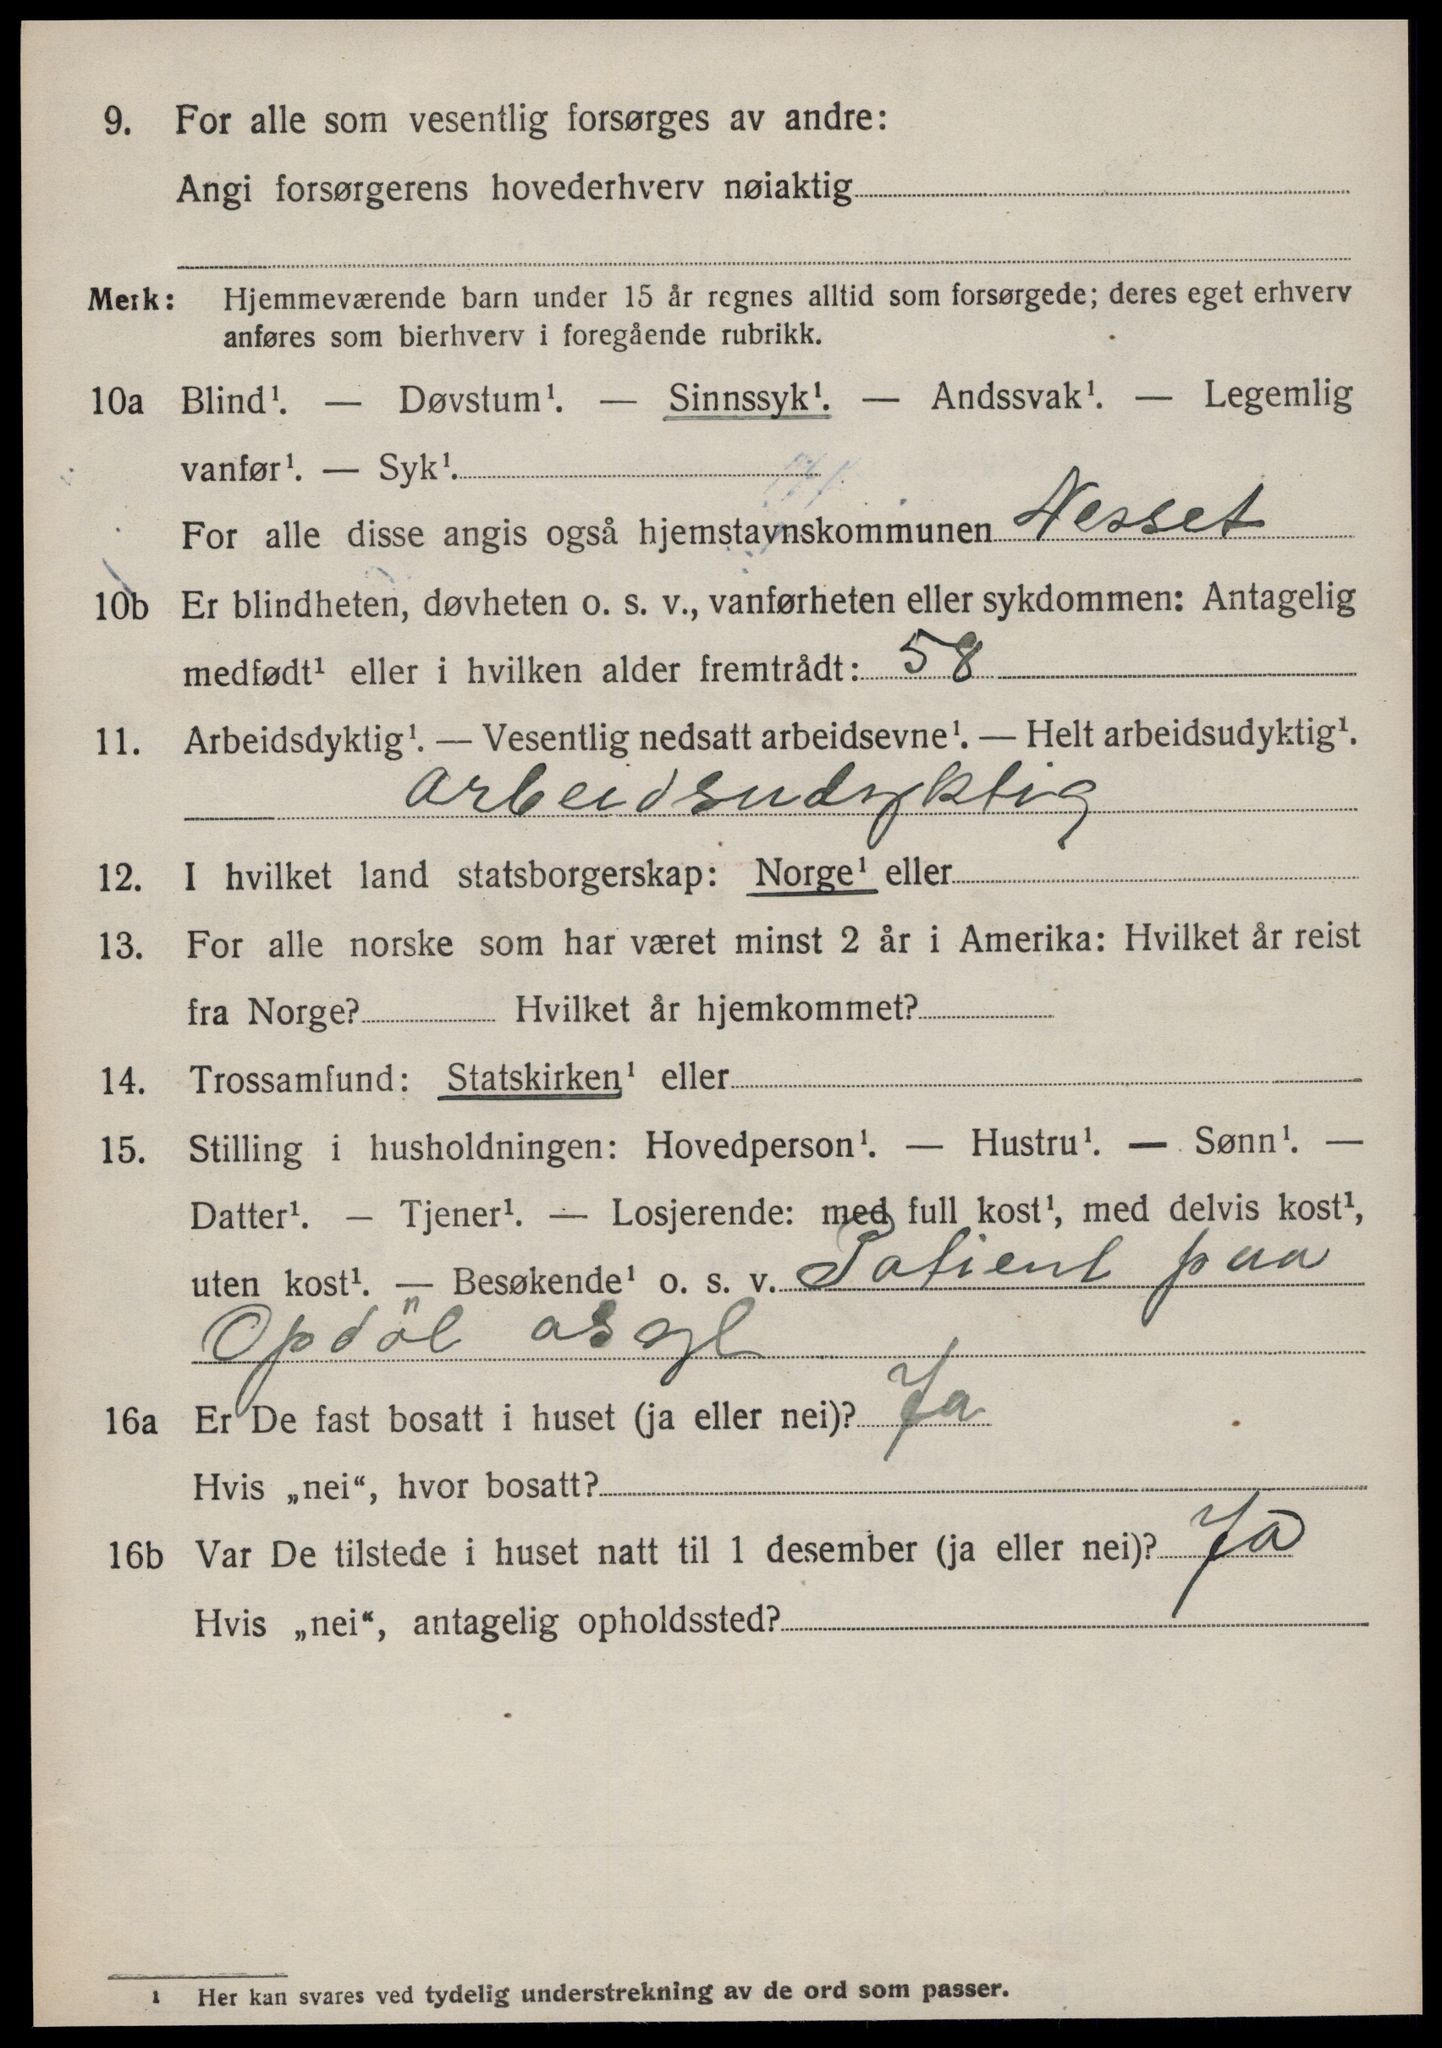 9. For alle som vesentlig forsørges av andre:
Angi forsørgerens hovederhverv nøiaktig
Merk: Hjemmeværende barn under 15 år regnes alltid som forsørgede; deres eget erhverv
anføres som bierhverv i foregående rubrikk.
10a Blind¹. — Døvstum¹. — Sinnssyk¹. — Andssvak¹. — Legemlig
vanfør¹. — Syk¹.
For alle disse angis også hjemstavnskommunen Nesset
10b Er blindheten, døvheten o. s. v., vanførheten eller sykdommen: Antagelig
medfødt¹ eller i hvilken alder fremtrådt: 58
11. Arbeidsdyktig¹. — Vesentlig nedsatt arbeidsevne¹. — Helt arbeidsudyktig¹.
arbeidsudyktig
12. I hvilket land statsborgerskap: Norge¹ eller
13. For alle norske som har været minst 2 år i Amerika: Hvilket år reist
fra Norge? Hvilket år hjemkommet?
14. Trossamfund: Statskirken¹ eller
15. Stilling i husholdningen: Hovedperson¹. — Hustru¹. — Sønn¹. —
Datter¹. — Tjener¹. — Losjerende: med full kost¹, med delvis kost¹,
uten kost¹. — Besøkende¹ o. s. v. Patient paa
Opdöl asyl
16a Er De fast bosatt i huset (ja eller nei)? Ja
Hvis „nei“, hvor bosatt?
16b Var De tilstede i huset natt til 1 desember (ja eller nei)? Ja
Hvis „nei“, antagelig opholdssted?
¹ Her kan svares ved tydelig understrekning av de ord som passer.